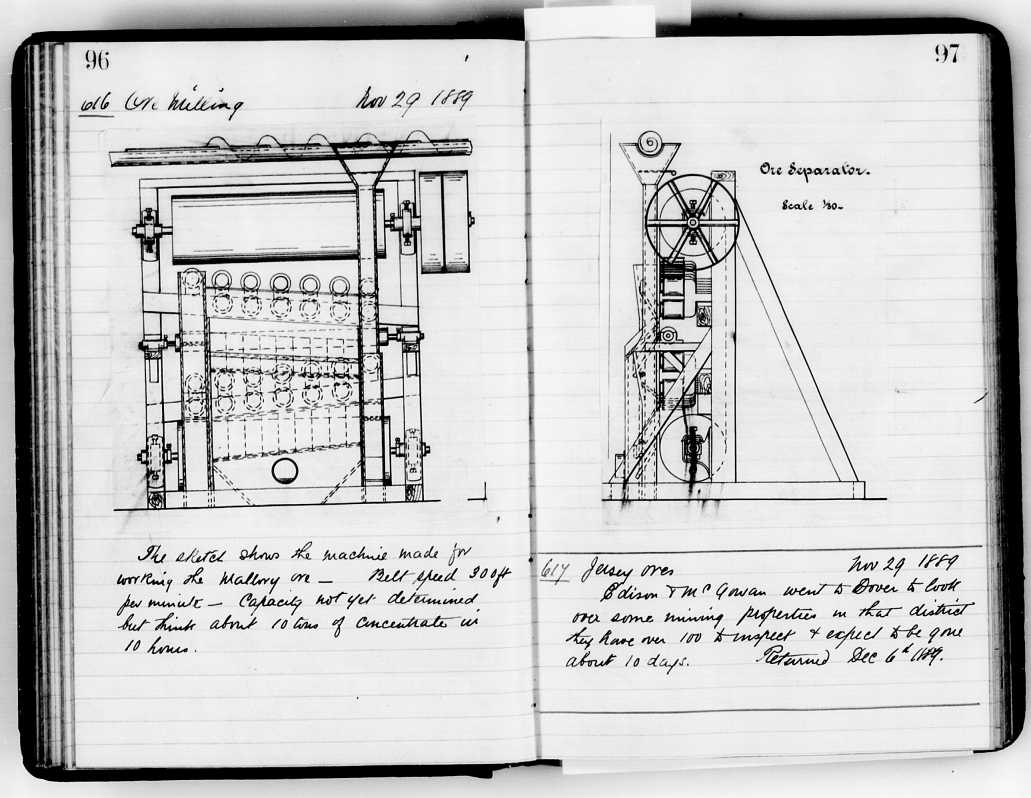 96
616 Ore Milling Nov 29 1889
The sketch shows the machine made for
working the Mallory ore — Belt speed 300ft
per minute — Capacity not yet determined
but think about 10 tons of concentrate in
10 hours.
97
6
Ore Separator.
Scale 1/30
617 Jersey ores Nov 29 1889
Edison & McGowan went to Dover to look
over some mining properties in that district
they have over 100 to inspect & expect to be gone
about 10 days. Returned Dec 6th 1889.